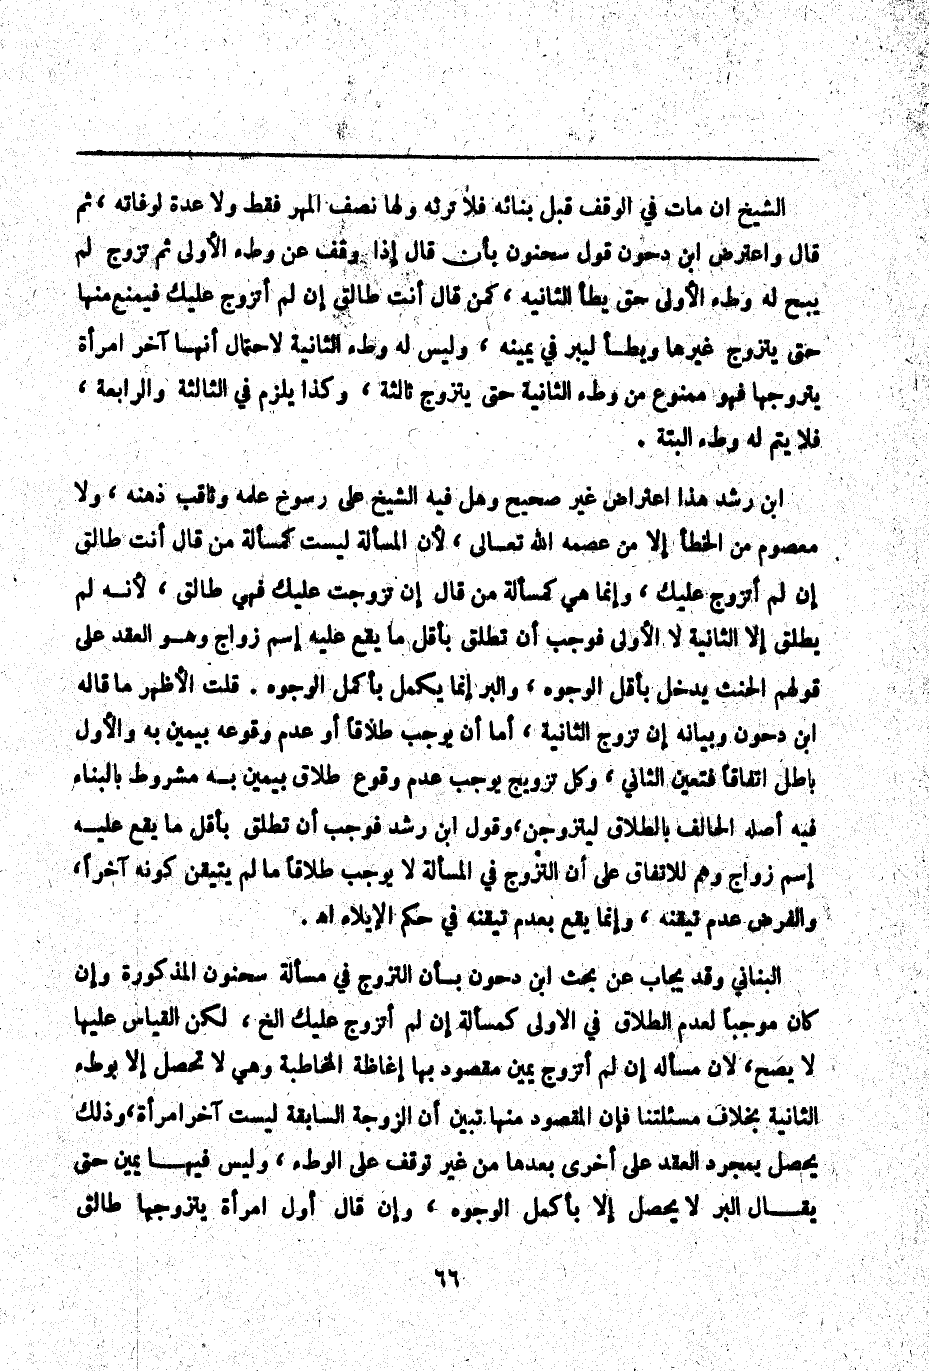 الشيخ ان مات في الوقف قبل بنائه فلا ترثه ولها نصف المهر فقط ولا عدة لوفاته ، ثم
قال واعترض ابن دحون قول سحنون بأن قال إذا وقف عن وطء الأولى ثم تزوج لم
يبح له وطء الأولى حتى يطأ الثانيه ، كمن قال أنت طالق إن لم أتزوج عليك فيمنع منها
حتى يتزوج غيرها ويطأ ليبر في يمينه ، وليس له وطء الثانية لاحتمال أنها آخر امرأة
يتزوجها فهو ممنوع من وطء الثانية حتى يتزوج ثالثة ، وكذا يلزم في الثالثة والرابعة ،
فلا يتم له وطء البتة .
ابن رشد هذا اعتراض غير صحيح وهل فيه الشيخ على رسوخ علمه وثاقب ذهنه ، ولا
معصوم من الخطأ إلا من عصمه الله تعالى ، لأن المسألة ليست كمسألة من قال أنت طالق
إن لم أتزوج عليك ، وإنما هي كمسألة من قال إن تزوجت عليك فهي طالق ، لأنه لم
يطلق إلا الثانية لا الأولى فوجب أن تطلق بأقل ما يقع عليه إسم زواج وهو العقد على
قولهم الحنث يدخل بأقل الوجوه ، والبر إنما يكمل بأكمل الوجوه . قلت الأظهر ما قاله
ابن دحون وبيانه إن تزوج الثانية ، أما أن يوجب طلاقاً أو عدم وقوعه بيمين به والأول
باطل اتفاقاً فتعين الثاني ، وكل تزويج يوجب عدم وقوع طلاق بيمين به مشروط بالبناء
فيه أصله الحالف بالطلاق ليتزوجن، وقول ابن رشد فوجب أن تطلق بأقل ما يقع عليه
إسم زواج وهم للاتفاق على أن التزوج في المسألة لا يوجب طلاقاً ما لم يتيقن كونه آخراً،
والفرض عدم تيقنه ، وإنما يقع بعدم تيقنه في حكم الإيلاء اهـ .
البناني وقد يجاب عن بحث ابن دحون بأن التزوج في مسألة سحنون المذكورة وإن
كان موجباً لعدم الطلاق في الاولى كمسألة إن لم أتزوج عليك الخ ، لكن القياس عليها
لا يصح، لان مسأله إن لم أتزوج يمين مقصود بها إغاظة المخاطبة وهي لا تحصل إلا بوطء
الثانية بخلاف مسئلتنا فإن المقصود منها تبين أن الزوجة السابقة ليست آخر امرأة، وذلك
يحصل بمجرد العقد على أخرى بعدها من غير توقف على الوطء ، وليس فيها يمين حتى
يقال البر لا يحصل إلا بأكمل الوجوه ، وإن قال أول امرأة يتزوجها طالق
٦٦